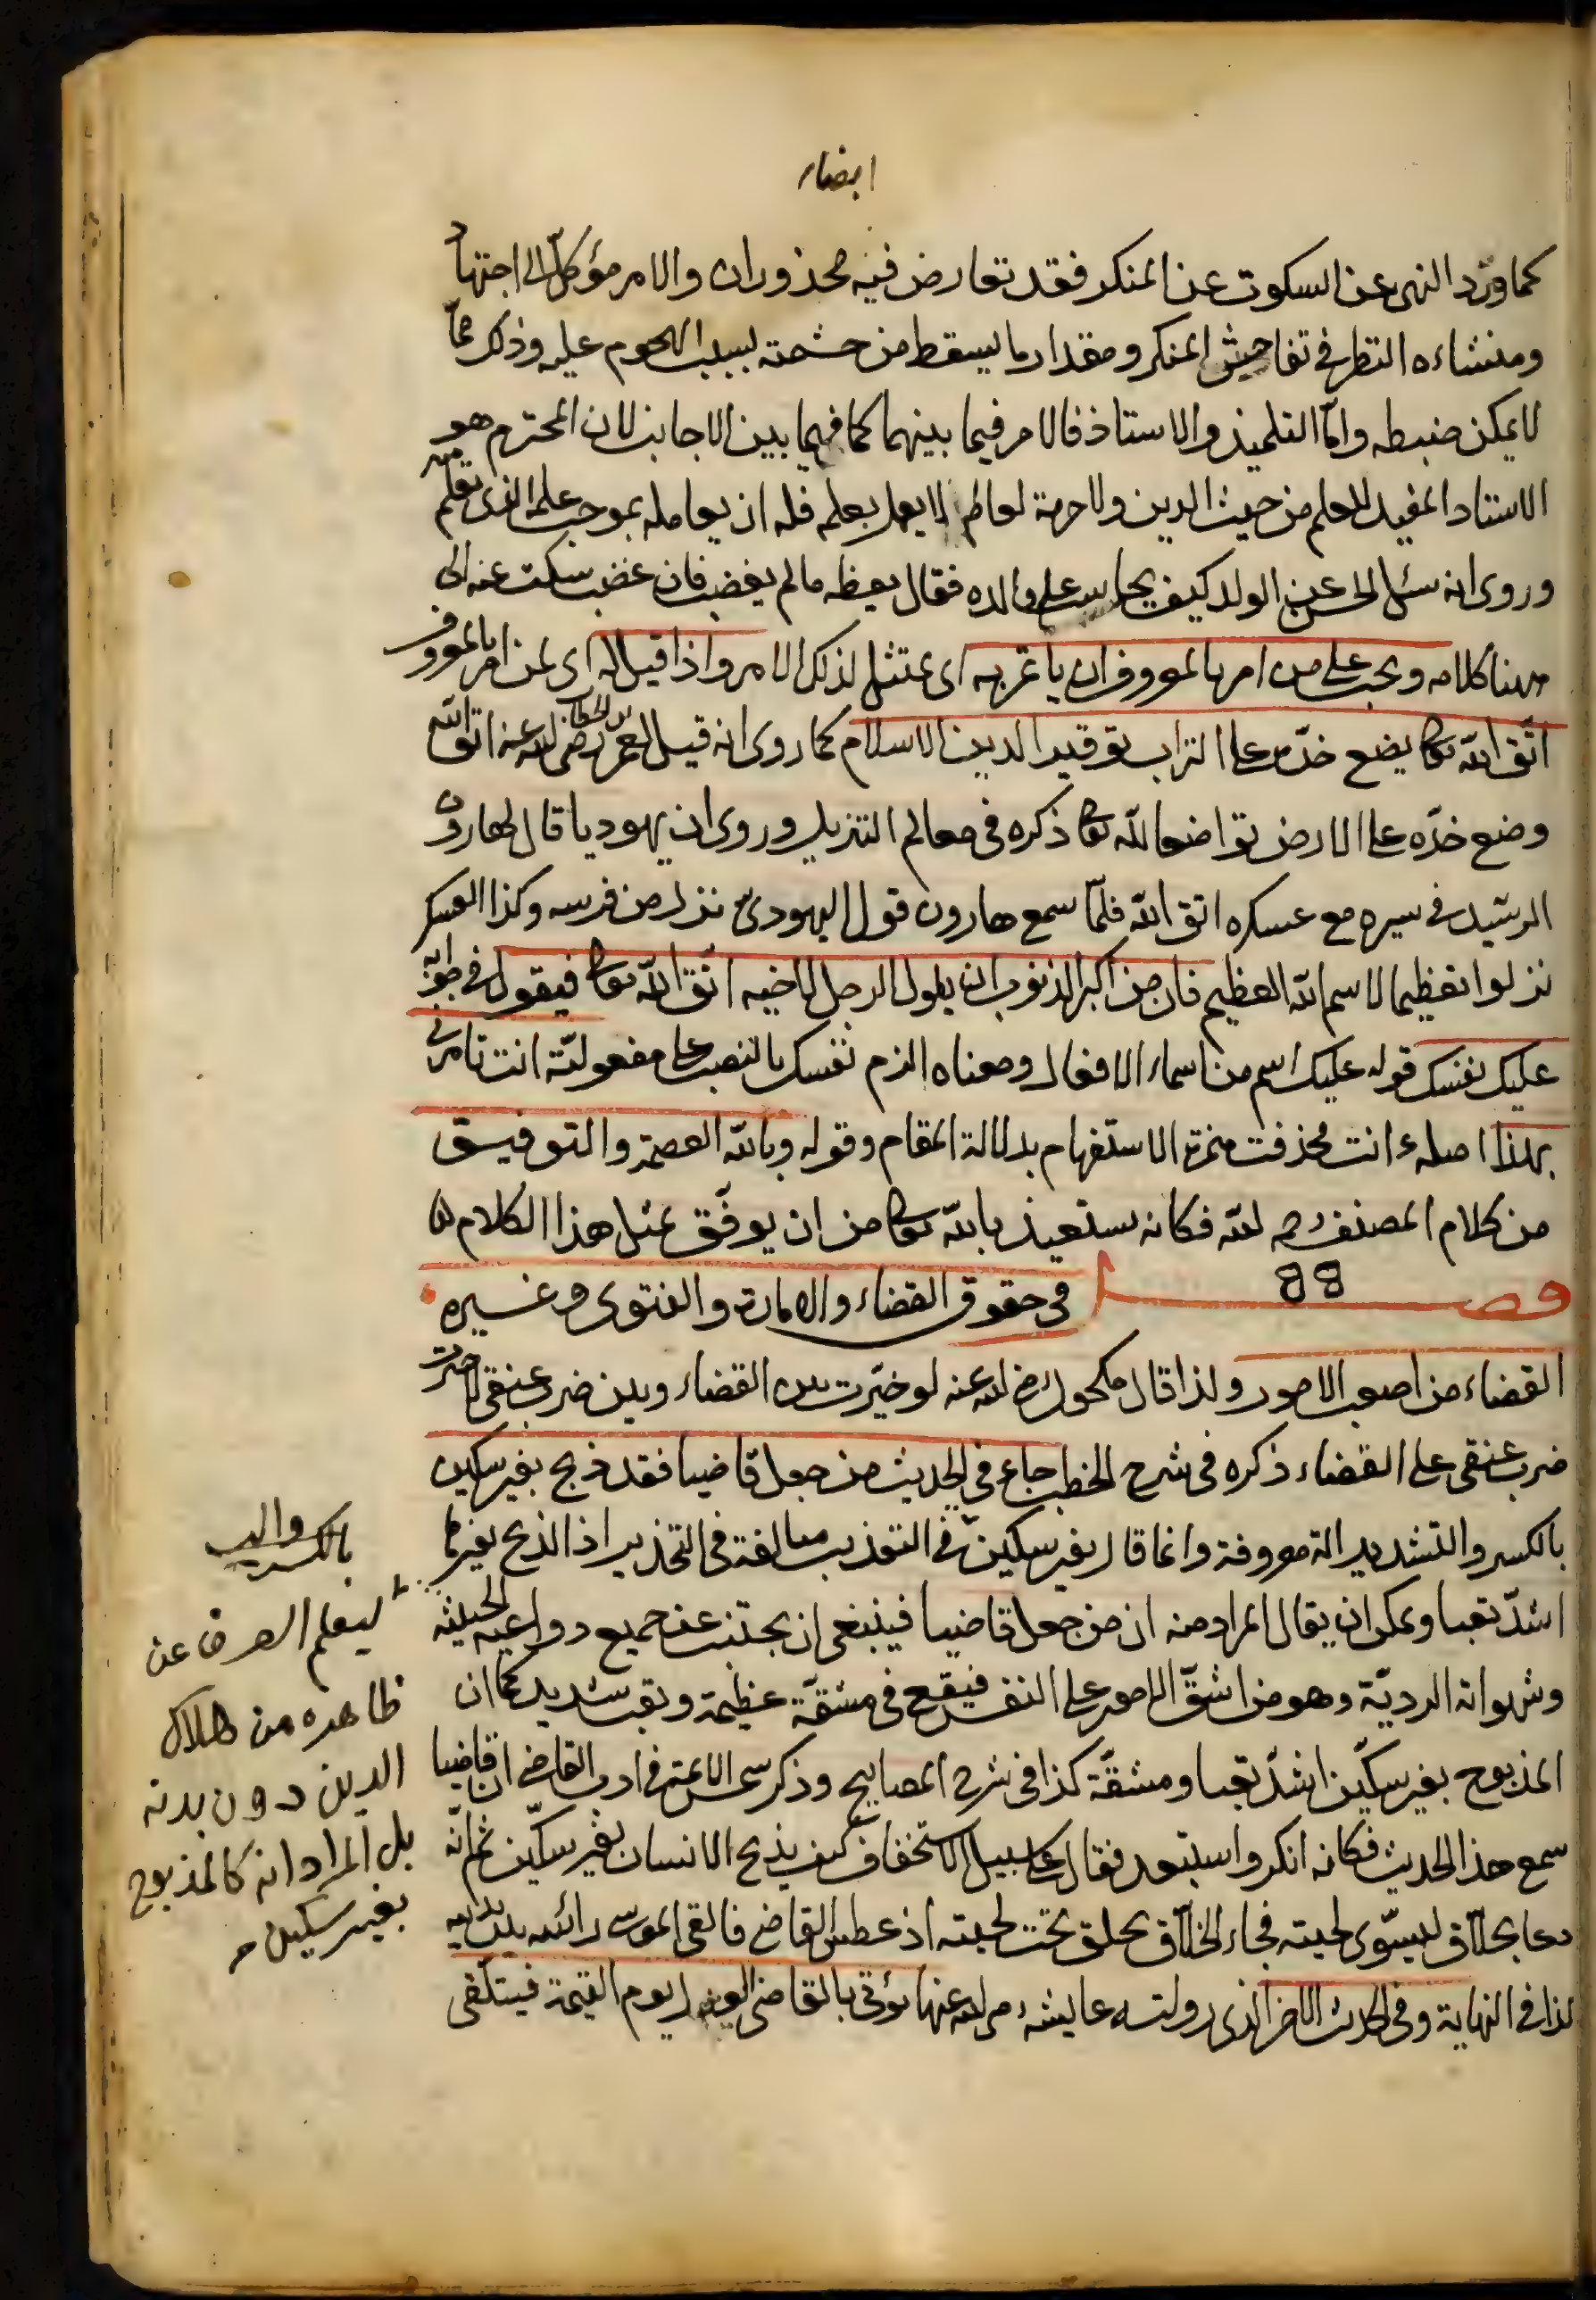 ايضاء
كما ورد النهى عن السكوت عن المنكر فقد تعارض فيه محذوران والامر مؤكل الى اجتهاد
ومنشاءه النظر فى تفاحش المنكر ومقدار ما يسقط من حشمته بسبب الهجوم عليه وذلك مما
لا يمكن ضبطه واما التلميذ والاستاذ فالامر فيما بينهما كما فيما بين الاجانب لان المحترم هو
الاستاد المفيد للعلم من حيث الدين ولا حرمة لعالم لا يعمل بعلمه فله ان يعامله بموجب علمه الذى تعلم منه
وروى انه سئل الحسن عن الولد كيف يحاسب على والده فقال يعظه ما لم يغضب فان غضب سكت عنه الى
ههنا كلامه ويجب على من امر بالمعروف ان يأتمر به اى يمتثل لذلك الامر واذا قيل له اى لمن امر بالمعروف
اتق الله تعالى يضع خده على التراب توقيرا لدين الاسلام كما روى انه قيل لعمر بن الخطاب رضى الله عنه اتق الله
وضع خده على الارض تواضعا لله تعالى ذكره فى معالم التنزيل وروى ان يهوديا قال لهارون
الرشيد فى سيره مع عسكره اتق الله فلما سمع هارون قول اليهودى نزل من فرسه وكذا العسكر
نزلوا تعظيما لاسم الله العظيم فان من اكبر الذنوب ان يقول الرجل لاخيه اتق الله تعالى فيقول فى جوابه
عليك نفسك قوله عليك اسم من اسماء الافعال ومعناه الزم نفسك بالنصب على مفعوليته انت تامرنى
بهذا اصله ءانت فحذفت همزة الاستفهام بدلالة المقام وقوله وبالله العصمة والتوفيق
من كلام المصنف رحمه الله فكانه يستعيذ بالله تعالى من ان يوفق بمثل هذا الكلام
فصل فى حقوق القضاء والامارة والفتوى وغيره
القضاء من اصعب الامور ولذا قال مكحول رضى الله عنه لو خيرت بين القضاء وبين ضرب عنقى لاخترت
ضرب عنقى على القضاء ذكره فى شرح الخطب جاء فى الحديث من جعل قاضيا فقد ذبح بغير سكين
بالكسر والتشديد الة معروفة وانما قال بغير سكين فى التعذيب مبالغة فى التحذير اذ الذبح بغيرها
اشد تعبا ويمكن ان يقال المراد منه ان من جعل قاضيا فينبغى ان يجتنب عن جميع دواعيه الخبيثة
وشهواته الردية وهو من اشق الامور على النفس فيقع فى مشقة عظيمة وتعب شديد كما ان
المذبوح بغير سكين اشد تعبا ومشقة كذا فى شرح المصابيح وذكر شمس الائمة فى ادب القاضى ان قاضيا
سمع هذا الحديث فكانه انكر واستبعد فقال على سبيل الاستخفاف كيف يذبح الانسان بغير سكين ثم انه
دعا بحلاق ليسوى لحيته فجاء الحلاق يحلق تحت لحيته اذ عطس القاضى فالقى الموسى رائسه بين يديه
كذا فى النهاية وفى الحديث الاخر الذى روته عايشة رضى الله عنها يؤتى بالقاضى العدل يوم القيمة فيتلقى
بالكسر
ليعلم الصرف عن
ظاهره من هلاك
الدين دون بدنه
بل المراد انه كالمذبوح
بغير سكين